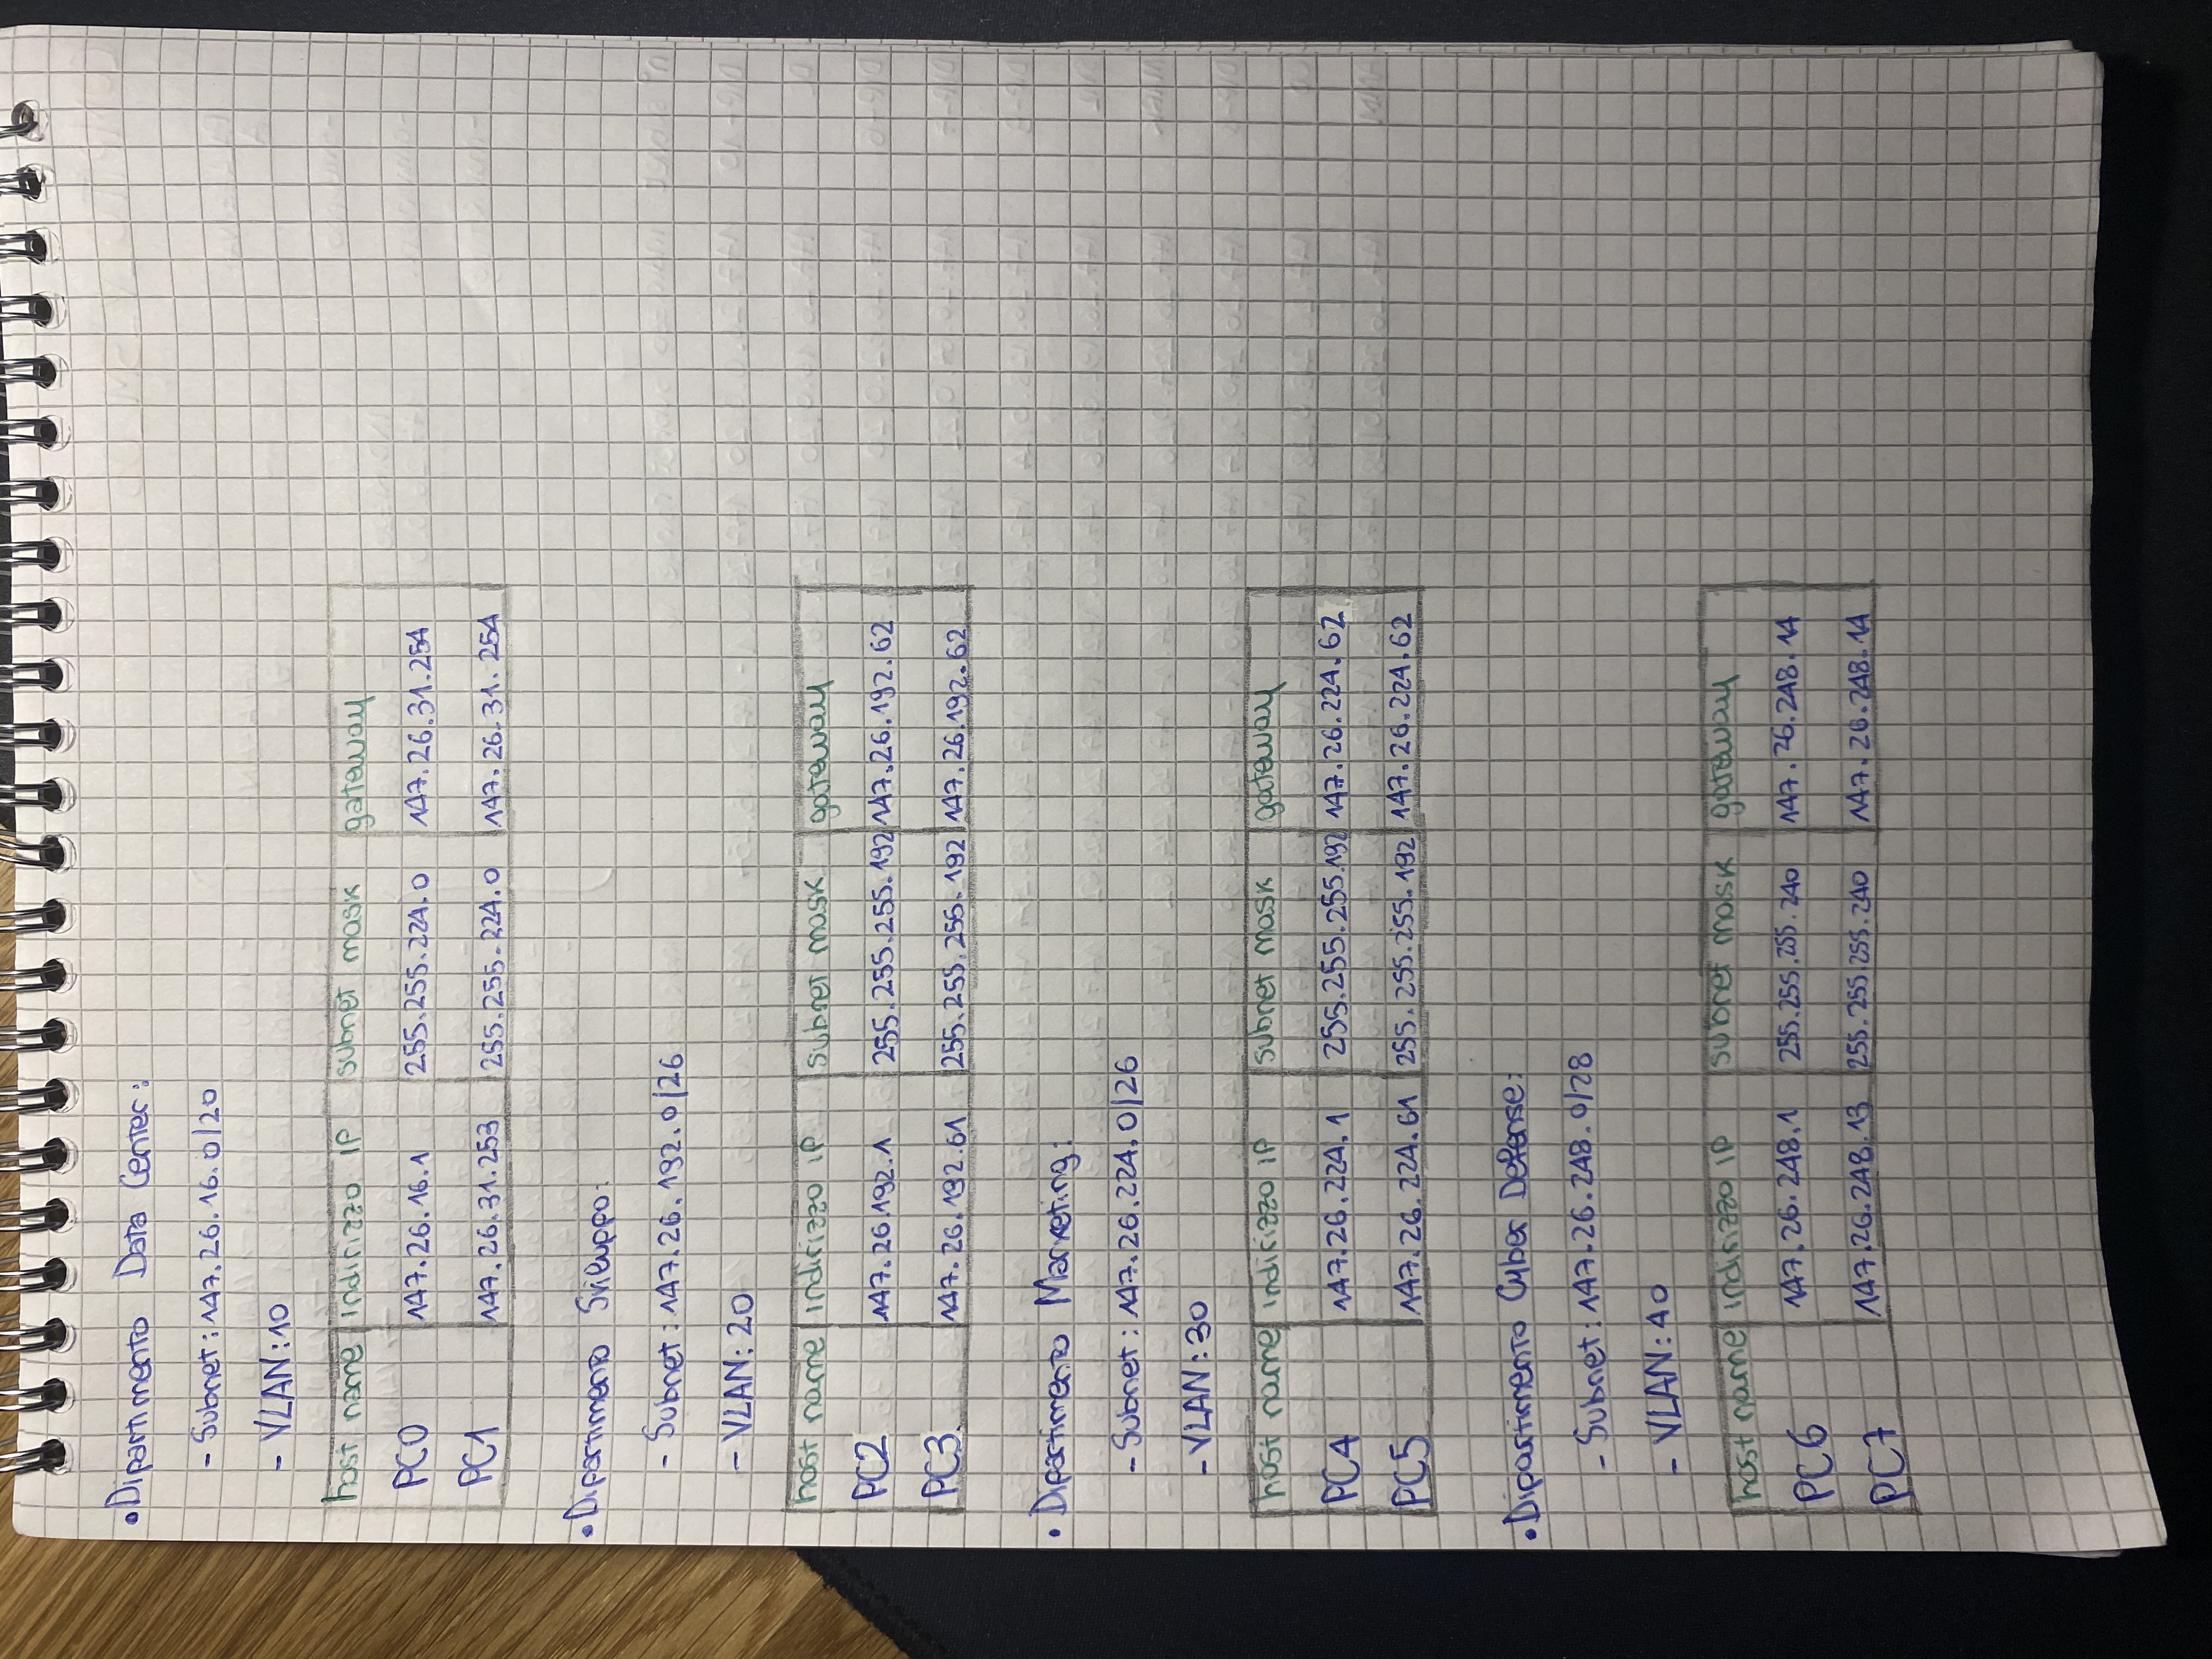 • Dipartimento Data Center:
- Subnet: 147.26.16.0/20
- VLAN: 10
host name indirizzo IP subnet mask gateway
PC0 147.26.16.1 255.255.224.0 147.26.31.254
PC1 147.26.31.253 255.255.224.0 147.26.31.254
• Dipartimento Sviluppo:
- Subnet: 147.26.192.0/26
- VLAN: 20
host name indirizzo IP subnet mask gateway
PC2 147.26.192.1 255.255.255.192 147.26.192.62
PC3 147.26.192.61 255.255.255.192 147.26.192.62
• Dipartimento Marketing:
- Subnet: 147.26.224.0/26
- VLAN: 30
host name indirizzo IP subnet mask gateway
PC4 147.26.224.1 255.255.255.192 147.26.224.62
PC5 147.26.224.61 255.255.255.192 147.26.224.62
• Dipartimento Cyber Defense:
- Subnet: 147.26.248.0/28
- VLAN: 40
host name indirizzo IP subnet mask gateway
PC6 147.26.248.1 255.255.255.240 147.26.248.14
PC7 147.26.248.13 255.255.255.240 147.26.248.14